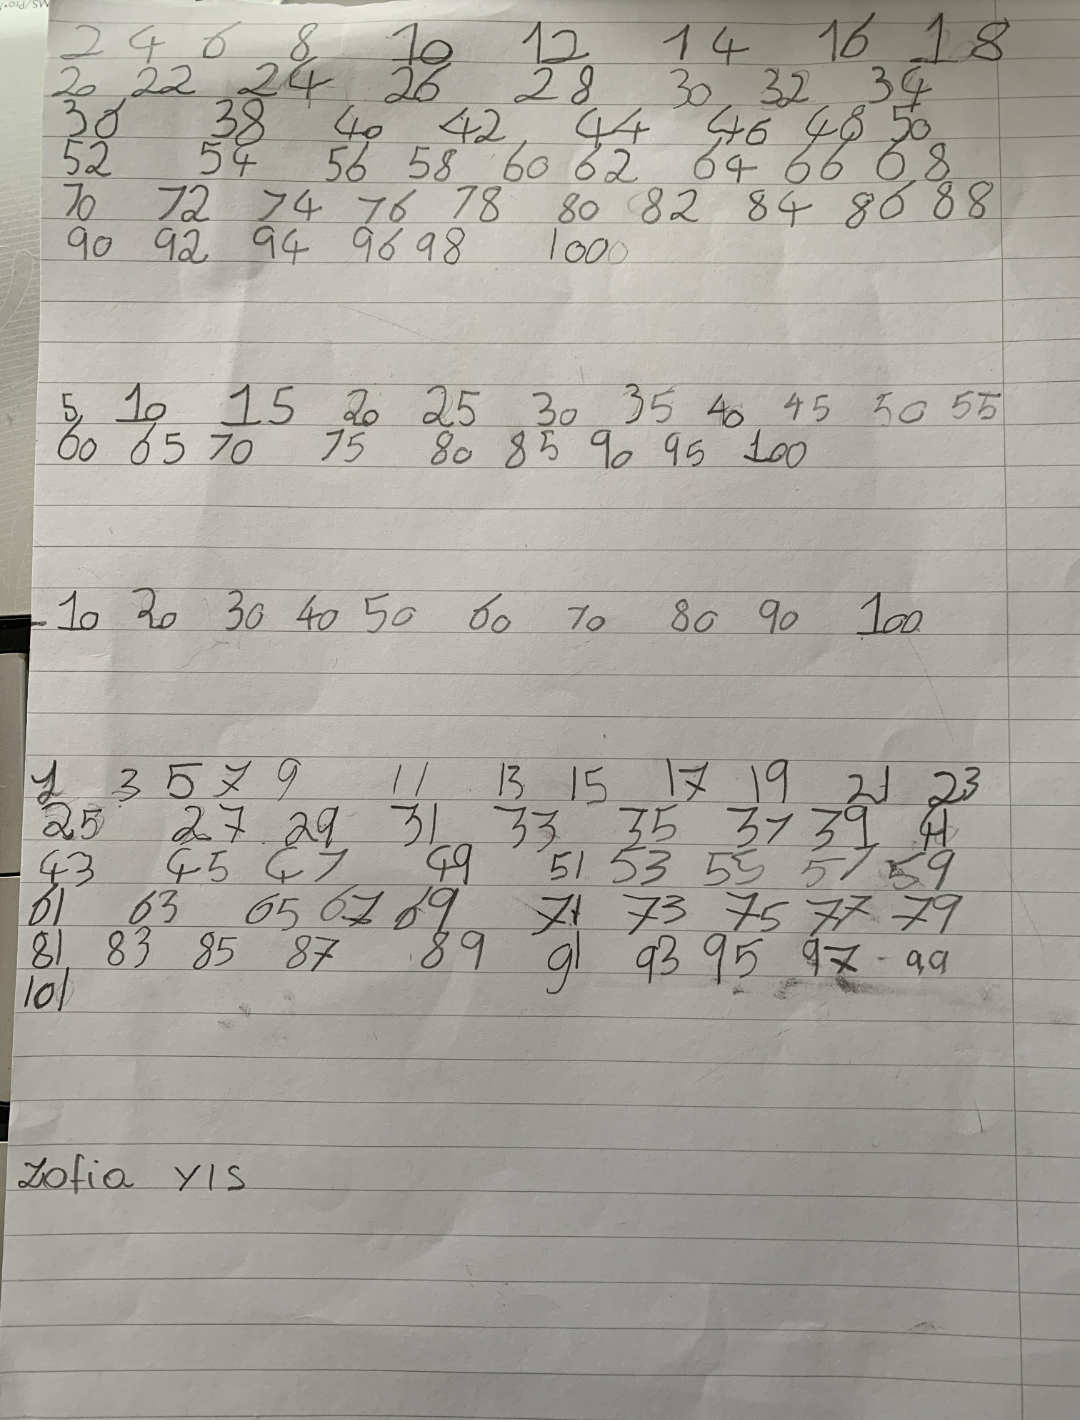 2 4 6 8 10 12 14 16 18
20 22 24 26 28 30 32 34
36 38 40 42 44 46 48 50
52 54 56 58 60 62 64 66 68
70 72 74 76 78 80 82 84 86 88
90 92 94 96 98 1000
5 10 15 20 25 30 35 40 45 50 55
60 65 70 75 80 85 90 95 100
10 20 30 40 50 60 70 80 90 100
1 3 5 7 9 11 13 15 17 19 21 23
25 27 29 31 33 35 37 39 41
43 45 47 49 51 53 55 57 59
61 63 65 67 69 71 73 75 77 79
81 83 85 87 89 91 93 95 97 99
101
Zofia Y1S